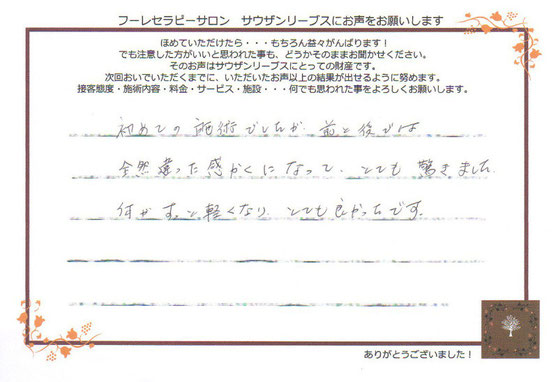 フーレセラピーサロン　サウザンリーブスにお声をお願いします
ほめていただけたら・・・もちろん益々がんばります！
でも注意した方がいいと思われた事も、どうかそのままお聞かせください。
そのお声はサウザンリーブスにとっての財産です。
次回おいでいただくまでに、いただいたお声以上の結果が出せるように努めます。
接客態度・施術内容・料金・サービス・施設・・・何でも思われた事をよろしくお願いします。
初めての施術でしたが、前と後では
全然違った感かくになって、とても驚きました。
何かすっと軽くなり、とても良かったです。
ありがとうございました！